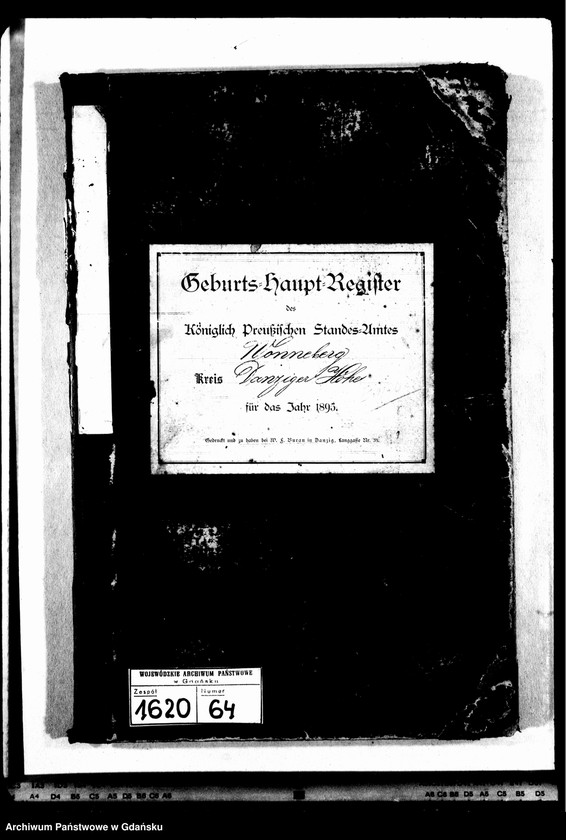 Geburts-Haupt-Register
des
Königlich Preußischen Standes-Amtes
Wonneberg
Kreis Danziger Höhe
für das Jahr 1895.
Gedruckt und zu haben bei W. F. Burau in Danzig, Langgasse Nr. 39.
WOJEWÓDZKIE ARCHIWUM PAŃSTWOWE
w Gdańsku
Zespół Numer
1620 64
A4 D4 B5 C5 A5 D5 B6 C6 A6
A6 C6 B6 D5 A5 C5 B5 D5
Archiwum Państwowe w Gdańsku